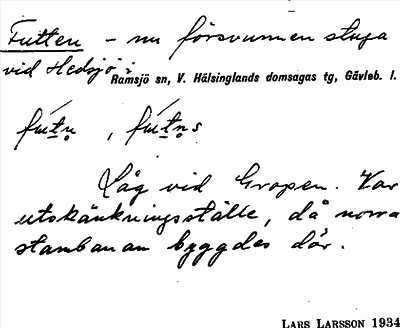 Futten – nu försvunnen stuga
vid Hedsjö i
Ramsjö sn, V. Hälsinglands domsagas tg, Gävleb. l.
fút̲n̥ , fút̲n̥s
Låg vid Gropen. Var
utskänkningsställe, då norra
stambanan byggdes där.
LARS LARSSON 1934